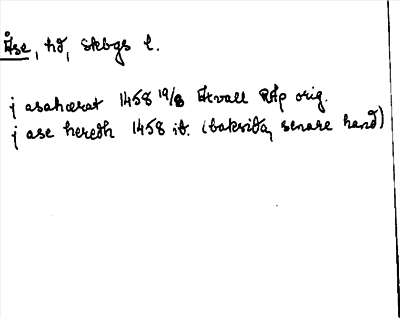 Åse, hd, Skbgs l.
j asahærat 1458 19/8 Ekvall RAp orig.
j ase heredh 1458 ib. (baksida, senare hand)